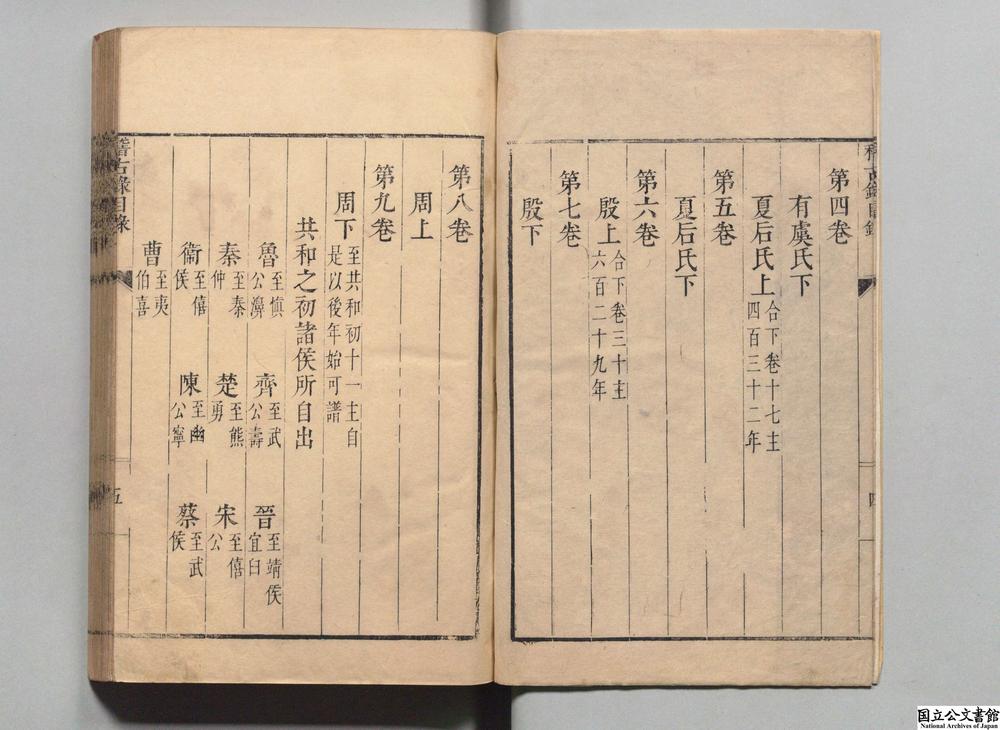 稽古錄目錄
第四卷
有虞氏下
夏后氏上 合下卷十七主四百三十二年
第五卷
夏后氏下
第六卷
殷上 合下卷三十主六百二十九年
第七卷
殷下
四
第八卷
周上
第九卷
周下 至共和初十一主自是以後年始可譜
共和之初諸侯所自出
魯 至愼公濞 齊 至武公壽 晉 至靖侯宜臼
秦 至秦仲 楚 至熊勇 宋 至僖公
衞 至僖侯 陳 至幽公寧 蔡 至武侯
曹 至夷伯喜
稽古錄目錄
五
国立公文書館
National Archives of Japan